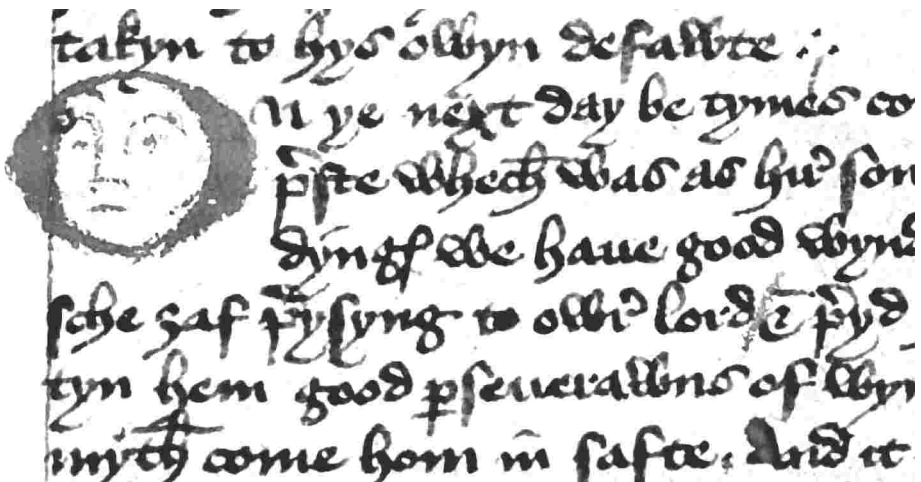 takyn to hys owyn defawte
On ye next day be tymes co
p̃ste whech̄ was as hir̉ son
dyngꝭ we haue good wynd
sche ȝaf p̃ysyng to owr̉ lord & p̃yd
tyn hem good ꝑseuerawns of wyn
myth̄ come hom in̄ safte. And it